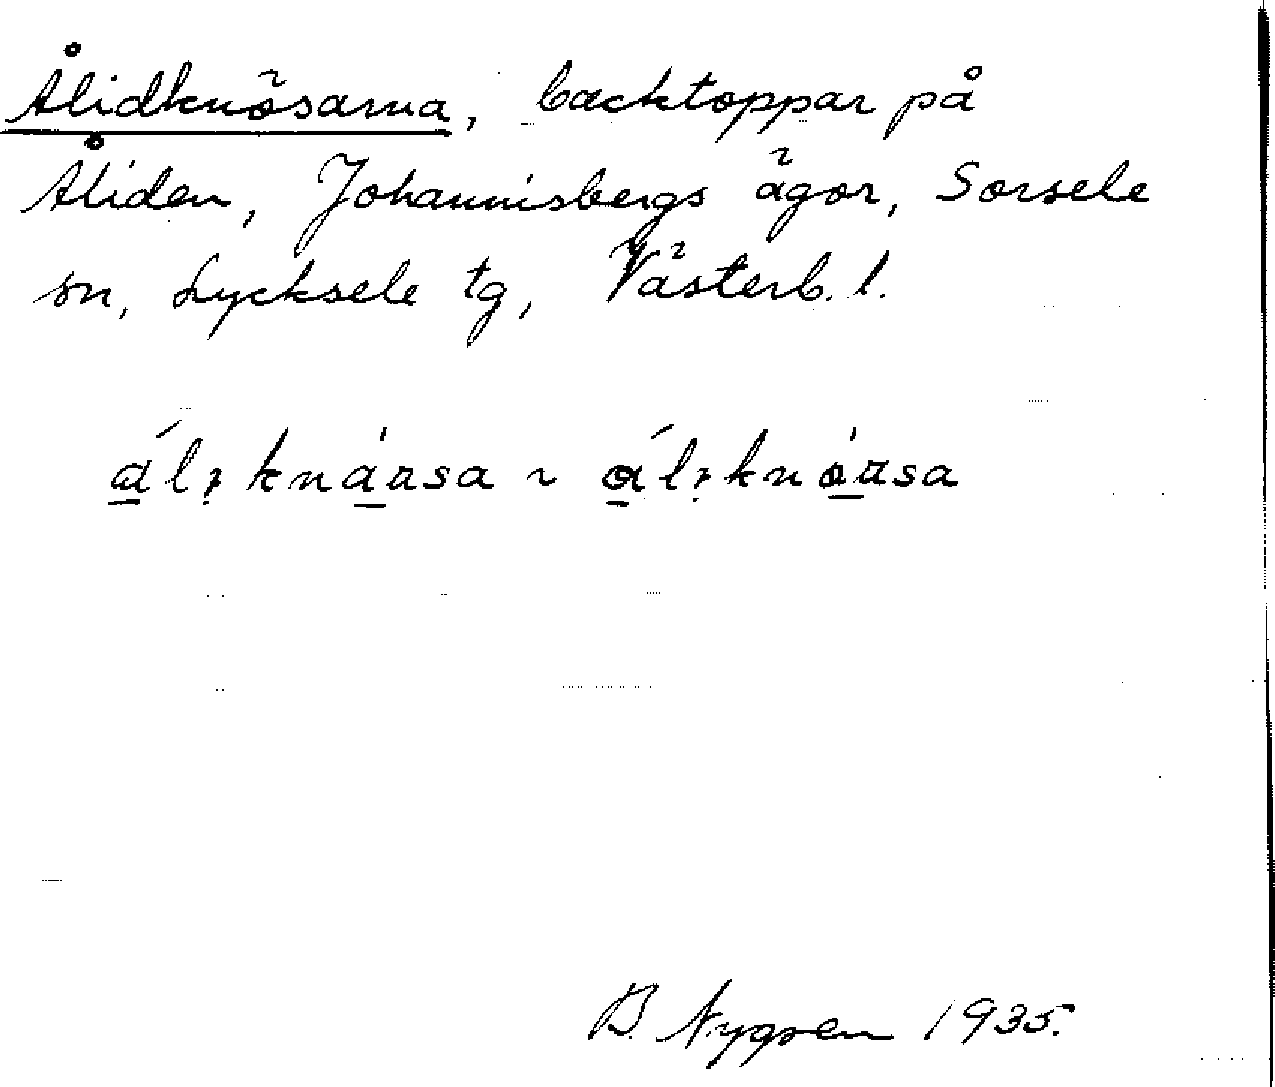 Ålidknösarna, backtoppar på
Åliden, Johannisbergs ägor, Sorsele
sn, Lycksele tg, Västerb. l.
B. Nygren 1935.